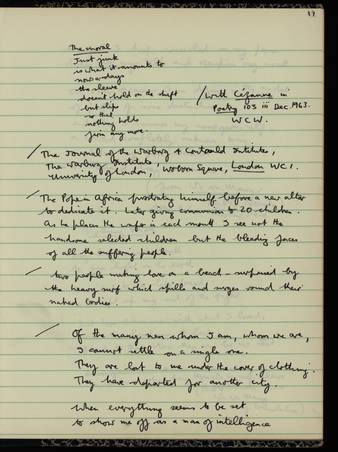 17
The moral
Just junk
is what it amounts to
nowadays
the sleeve
doesn't hold on the shaft
but slips
so that
nothing holds
firm any more.
/ with Cézanne in
Poetry 103 iii Dec. 1963.
W.C.W.
/ The Journal of the Warburg & Courtauld Institutes,
The Warburg Institute,
University of London, Woburn Square, London WC1.
/ The Pope in Africa prostrating himself before a new altar
to dedicate it. Later giving communion to 20 children.
As he places the wafer in each mouth I see not the
handsome selected children but the bleeding faces
of all the suffering people.
/ Two people making love on a beach – surprised by
the heavy surf which spills and surges round their
naked bodies.
/ Of the many men whom I am, whom we are,
I cannot settle on a single one.
They are lost to me under the cover of clothing.
They have departed for another city.
When everything seems to be set
to show me off as a man of intelligence